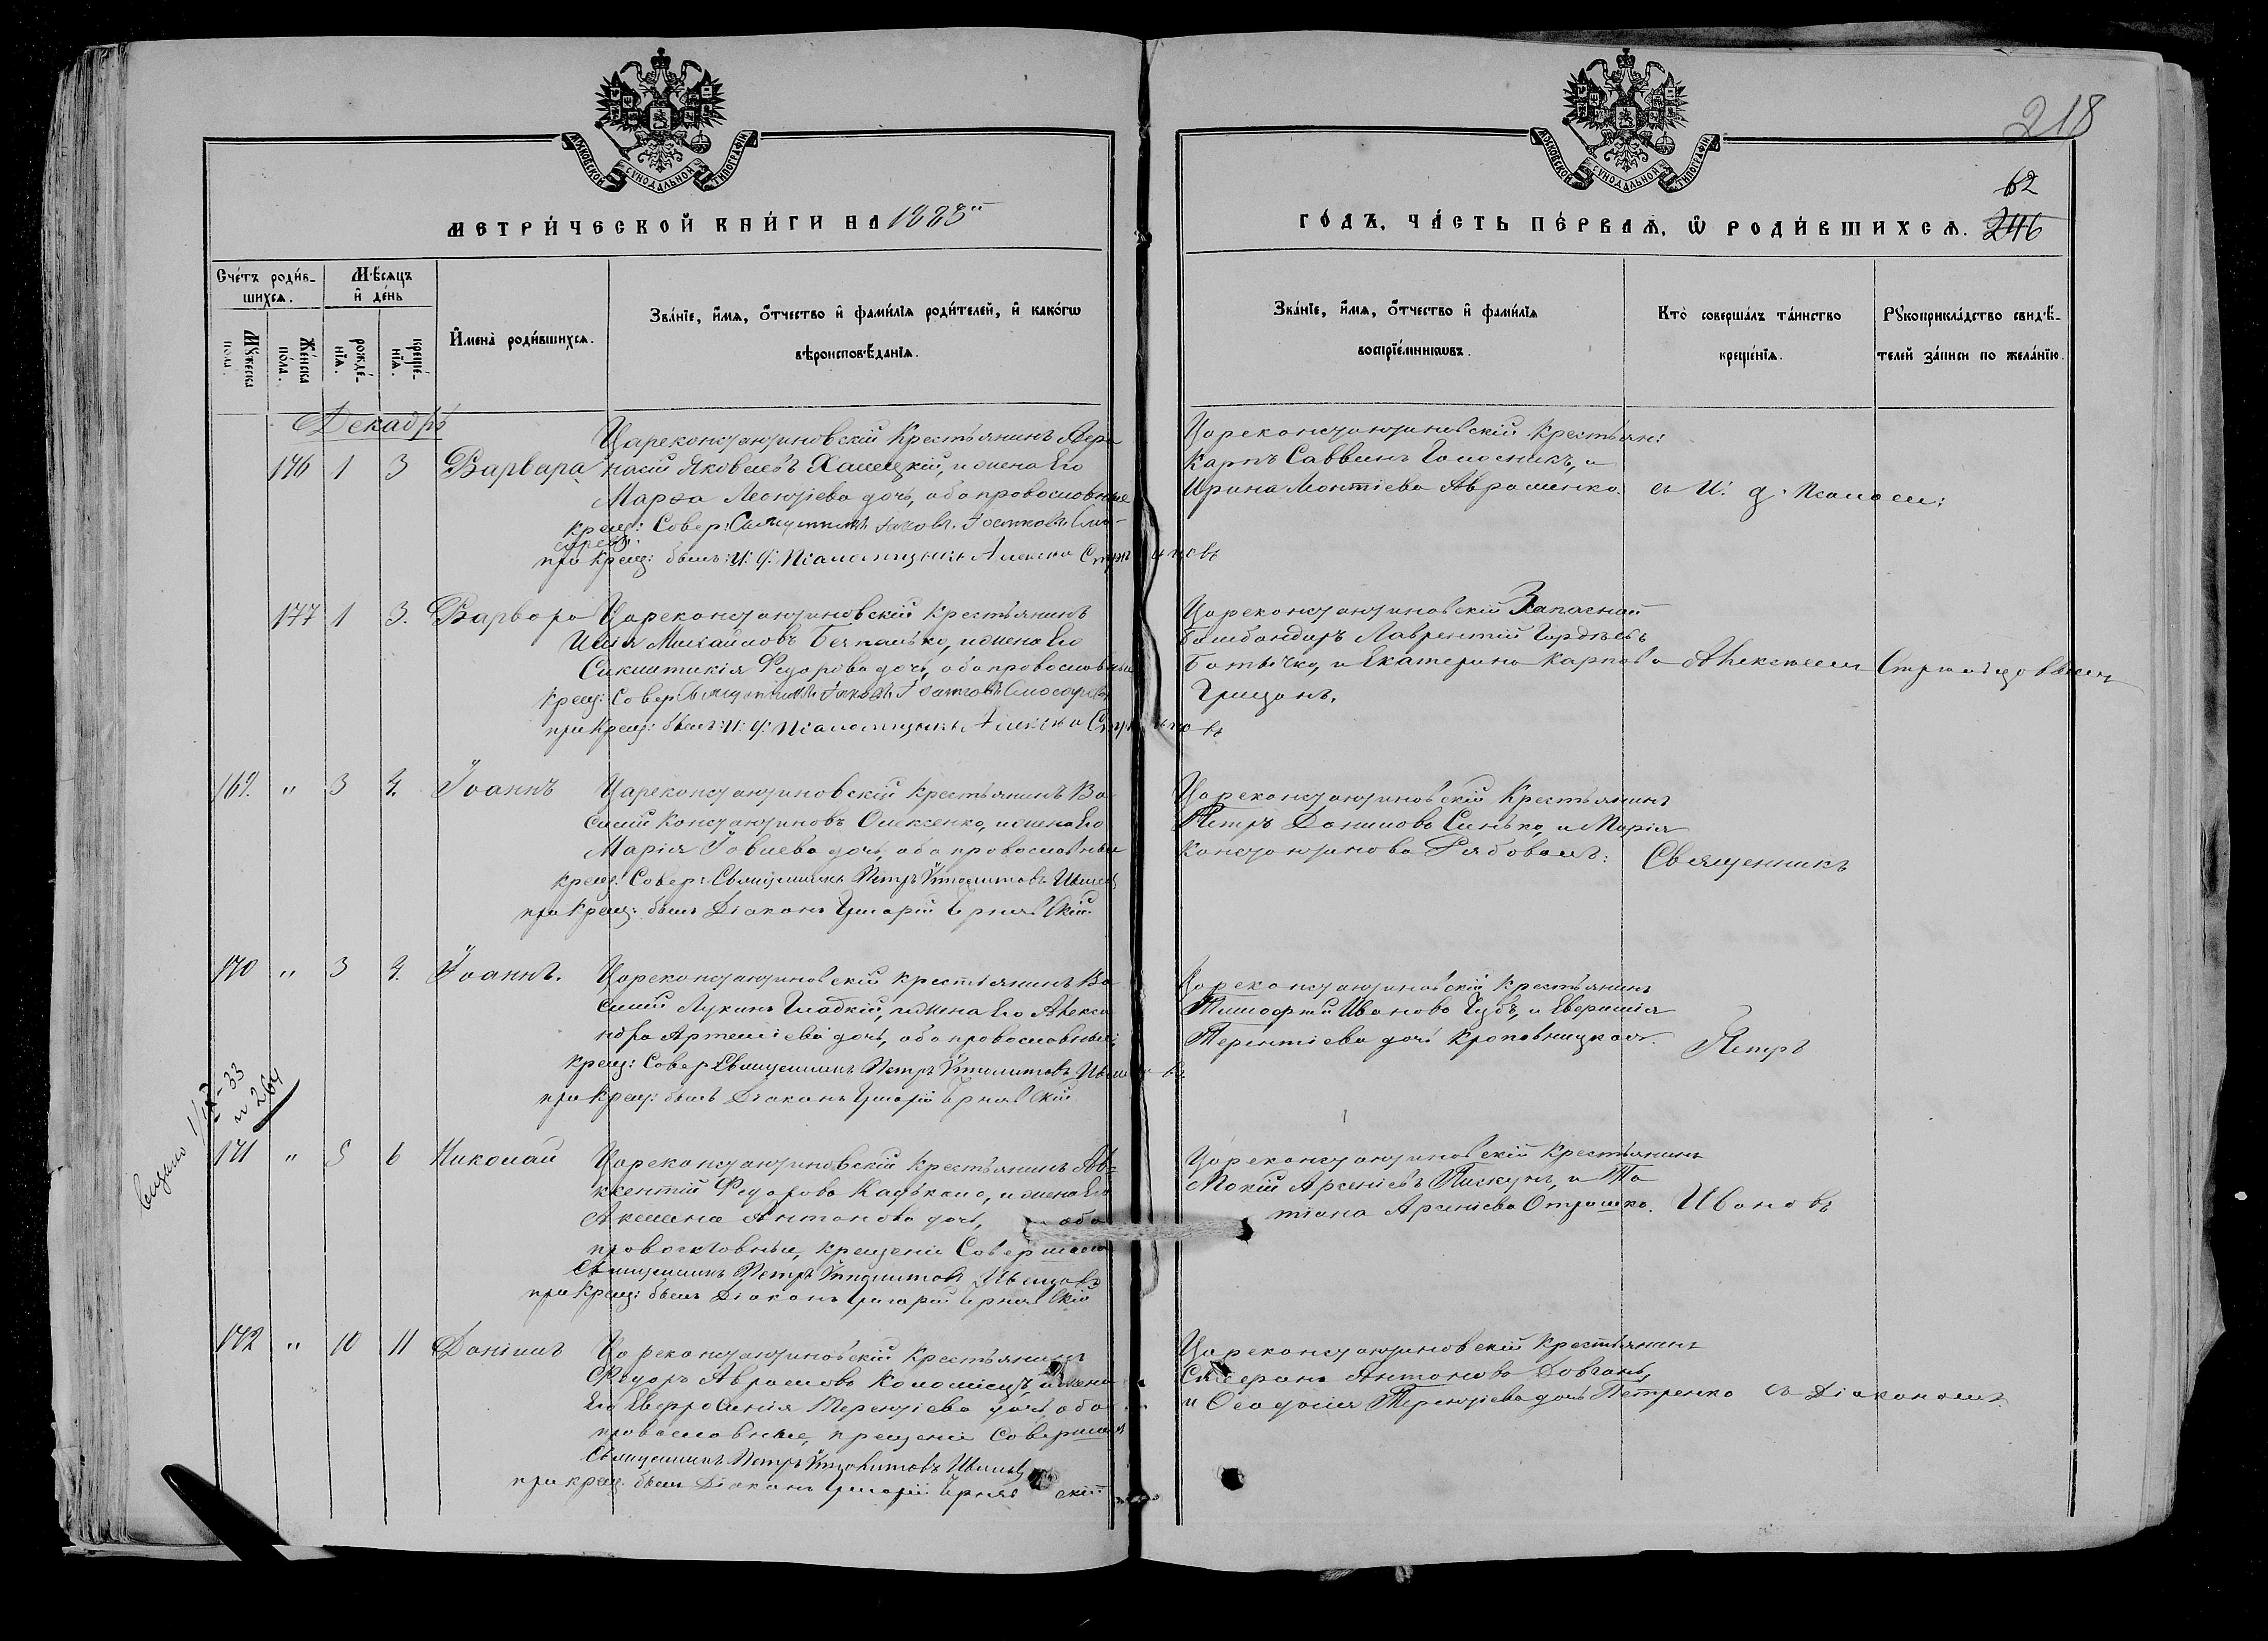 218
62
246
МОСКОВСКОЙ СѴНОДАЛЬНОЙ ТИПОГРАФІИ
МОСКОВСКОЙ СѴНОДАЛЬНОЙ ТИПОГРАФІИ
МЕТРИ́ЧЕСКОЙ КНИ́ГИ НА 1883й
ГО́ДЪ, ЧА́СТЬ ПЕ́РВАѦ, Ѿ РОДИ́ВШИХСѦ.
Сче́тъ роди́вшихсѧ.
Мꙋ́жеска по́ла.
Же́нска по́ла.
Мѣ́сѧцъ и҆ де́нь
рожде́нїѧ.
креще́нїѧ.
И҆мена̀ роди́вшихсѧ.
Зва́нїе, и҆́мѧ, ѻ҆́тчество и҆ фами́лїѧ роди́телей, и҆ како́гѡ
вѣроисповѣ́данїѧ.
Зва́нїе, и҆́мѧ, ѻ҆́тчество и҆ фами́лїѧ
воспрїе́мникѡвъ.
Кто̀ соверша́лъ та́инство
креще́нїѧ.
Рꙋкоприкла́дство свидѣ́телей за́писи по жела́нїю.
Декабрь
176 1 3 Варвара
Цареконстантиновскій Крестьянинъ
Яковлевъ Халецкій, и жена Его
Марѳа Леонтіева дочь, оба православные
Крещ: Совер: Священникъ Іаковъ
при Крещ: былъ: И: д: Псаломщика Алексѣй
Цареконстантиновскій Крестьян:
Карпъ Саввинъ Голосникъ, и
Ирина Леонтіева Авраменко.
съ И: д: Псалом:
177 1 3. Варвара
Цареконстантиновскій Крестьянинъ
Илія Михайловъ Безпалько, и жена Его
Синклитикія Федорова дочь, оба православные
Крещ: Совер: Священникъ Іаковъ
при Крещ: былъ: И: д: Псаломщика Алексѣй
Цареконстантиновскій Запасной
Бомбандиръ Лаврентій Гордѣевъ
Батычко, и Екатерина Карпова
Грицанъ.
Алексѣем
169. " 3 4. Іоаннъ
Цареконстантиновскій Крестьянинъ Ва
силій Константиновъ Олексенко, и жена Его
Марія Іовлева дочь, оба православные
Крещ: Совер: Священникъ Петръ Ипполитовъ Ивановъ
при Крещ: былъ Діаконъ Григорій
Цареконстантиновскій Крестьянинъ
Петръ Даниловъ Синько, и Марія
Константинова Рябовалъ:
Священникъ
170 " 3 4. Іоаннъ.
Цареконстантиновскій Крестьянинъ Ва
силій Лукинъ Гладкій, и жена Его Алекса
ндра Артеміева дочь, оба православные;
Крещ: Совер: Священникъ Петръ Ипполитовъ Ивановъ
при Крещ: былъ Діаконъ Григорій
Цареконстантиновскій Крестьянинъ
Тимофѣй Ивановъ Губъ, и Евфросинія
Терентіева дочь Кропивницкая.
Петръ
171 " 5 6 Николай
Цареконстантиновскій Крестьянинъ Ав=
ксентій Федоровъ и жена Его
Акилина Антонова дочь, оба
православные, Крещеніе Совершалъ
Священникъ Петръ Ипполитовъ Ивановъ
при Крещ: былъ Діаконъ Григорій
Цареконстантиновскій Крестьянинъ
Мокій Арсеніевъ Пискунъ, и Та
тіана Арсеніева Отрошко.
Ивановъ
1/IX-33
№ 264
172 " 10 11 Даніилъ
Цареконстантиновскій Крестьянинъ
Федоръ Аврамовъ Коломіецъ, и жена
Его Евфросинія Терентіева дочь, оба
православные, крещеніе Совершалъ
Священникъ Петръ Ипполитовъ Ивановъ
при крещ: былъ Діаконъ Григорій
Цареконстантиновскій Крестьянинъ
Антоновъ Довгань,
и Ѳеодосія Терентіева дочь Петренко
съ Діакономъ